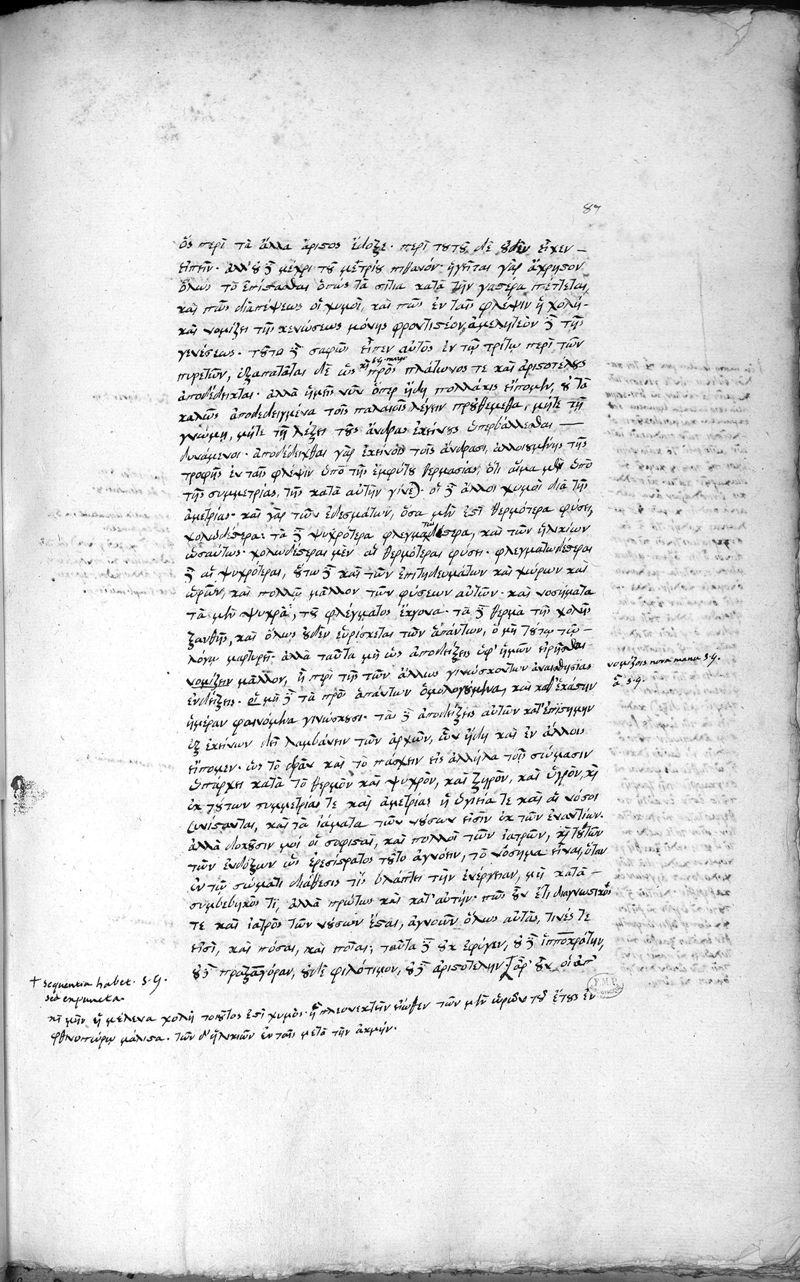 87
ὃς περὶ τὰ ἄλλα ἄριστος ἔδοξε. περὶ τούτου δὲ οὐδὲν εἶχεν
εἰπεῖν. ἀλλ' οὐδὲ μέχρι τοῦ μετρίου πιθανόν. ἡγεῖται γὰρ ἄχρηστον
ὅλως τὸ ἐπίστασθαι ὅπως τὰ σιτία κατὰ τὴν γαστέρα πέττεται,
καὶ πῶς διαπέψεως οἱ χυμοὶ, καὶ πῶς ἐν ταῖς φλέψιν ἡ χολή.
καὶ νομίζει τῆς κενώσεως μόνης φροντιστέον, ἀμελητέον δὲ τῆς
γενέσεως. τοῦτο δὲ σαφῶς εἶπεν αὐτὸς ἐν τῷ τρίτῳ περὶ τῶν
πυρετῶν, ἐξαπατᾶται δὲ ὡς πρὸς πλάτωνος τε καὶ ἀριστοτέλους
ἀποδέδεικται. ἀλλὰ ἡμεῖς νῦν ὅπερ ἤδη πολλάκις εἴπομεν, οὐ τὰ
καλῶς ἀποδεδειγμένα τοῖς παλαιοῖς λέγειν προυθέμεθα, μήτε τῇ
γνώμῃ, μήτε τῇ λέξει τοὺς ἄνδρας ἐκείνους ὑπερβάλλεσθαι
δυνάμενοι. ἀποδέδεικται γὰρ ἐκείνοις τοῖς ἀνδράσι, ἀλλοιουμένης τῆς
τροφῆς ἐν ταῖς φλεψὶν ὑπὸ τῆς ἐμφύτου θερμασίας, ὅτι αἷμα μὲν ὑπὸ
τῆς συμμετρίας, τῆς κατὰ αὐτὴν γίνεται. οἱ δὲ ἄλλοι χυμοὶ διὰ τῆς
ἀμετρίας. καὶ γὰρ τῶν ἐδεσμάτων, ὅσα μὲν ἐστὶ θερμότερα φύσει,
χολωδέστερα. τὰ δὲ ψυχρότερα φλεγματωδέστερα, καὶ τῶν ἡλικιῶν
ὡσαύτως. χολωδέστεραι μὲν αἱ θερμότεραι φύσει. φλεγματωδέστεραι
δὲ αἱ ψυχρότεραι, οὕτω δὲ καὶ τῶν ἐπιτηδευμάτων καὶ χώρων καὶ
ὡρῶν, καὶ πολλῷ μᾶλλον τῶν φύσεων αὐτῶν. καὶ νοσήματα
τὰ μὲν ψυχρὰ, τοῦ φλέγματος ἔκγονα. τὰ δὲ θερμὰ τῆς χολῆς
ξανθῆς, καὶ ὅλως οὐδὲν εὑρίσκεται τῶν ἁπάντων, ὃ μὴ τούτῳ τῷ
λόγῳ μαρτυρεῖ. ἀλλὰ ταῦτα μὴ ὡς ἀποδείξεις ὑφ' ἡμῶν εἰρῆσθαι
νομίζειν μᾶλλον, ἢ περὶ τῆς τῶν ἄλλως γινωσκόντων ἀναισθησίας
ἐνδείξεις. οἳ μὴ δὲ τὰ πρὸς ἁπάντων ὁμολογούμενα, καὶ καθ' ἑκάστην
ἡμέραν φαινόμενα γινώσκουσι. τὰς δὲ ἀποδείξεις αὐτῶν κατ' ἐπιστήμην
ἐξ ἐκείνων δεῖ λαμβάνειν τῶν ἀρχῶν, ὧν ἤδη καὶ ἐν ἄλλοις
εἴπομεν. ὡς τὸ δρᾶν καὶ τὸ πάσχειν εἰς ἄλληλα τοῖς σώμασιν
ὑπάρχει κατὰ τὸ θερμὸν καὶ ψυχρὸν, καὶ ξηρὸν, καὶ ὑγρὸν, καὶ
ἐκ τούτων συμμετρίας τε καὶ ἀμετρίας ἡ ὑγιεία τε καὶ αἱ νόσοι
συνίστανται, καὶ τὰ ἰάματα τῶν νόσων εἰσὶν ἐκ τῶν ἐναντίων.
ἀλλὰ δοκοῦσιν μοὶ οἱ σοφισταὶ, καὶ πολλοὶ τῶν ἰατρῶν, καὶ τούτων
τῶν ἐνδόξων ὡς ἐρασίστρατος τοῦτο ἀγνοεῖν, τὸ νόσημα εἶναι, ὅταν
ἐν τῷ σώματι διάθεσις τὶς βλάπτει τὴν ἐνέργειαν, μὴ κατὰ
συμβεβηκός τι, ἀλλὰ πρώτως καὶ κατ' αὐτήν. πῶς οὖν ἔτι διαγνωστικὸς
τε καὶ ἰατρὸς τῶν νόσων ἔσται, ἀγνοῶν ὅλως αὐτὰς, τινές τε
εἰσὶ, καὶ πόσαι, καὶ ποῖαι; ταῦτα δὲ οὐκ ἔφυγεν, οὐδὲ ἱπποκράτην,
οὐδὲ πραξαγόραν, οὐδὲ φιλότιμον, οὐδὲ ἀριστοτέλην † ἆρ' οὖν οἱ ἀπ'
νομίζοις nova manu S.G.
ἢ S.G.
† sequentia habet S.G.
sed expuncta.
καὶ μὴν ἡ μέλαινα χολὴ τοιοῦτος ἐστὶ χυμός. ἣ πλεονεκτεῖν εἴωθεν τῶν μὲν ὡρῶν τοῦ ἔτους ἐν
φθινοπώρῳ μάλιστα. τῶν δ' ἡλικιῶν ἐν ταῖς μετὰ τὴν ἀκμήν.